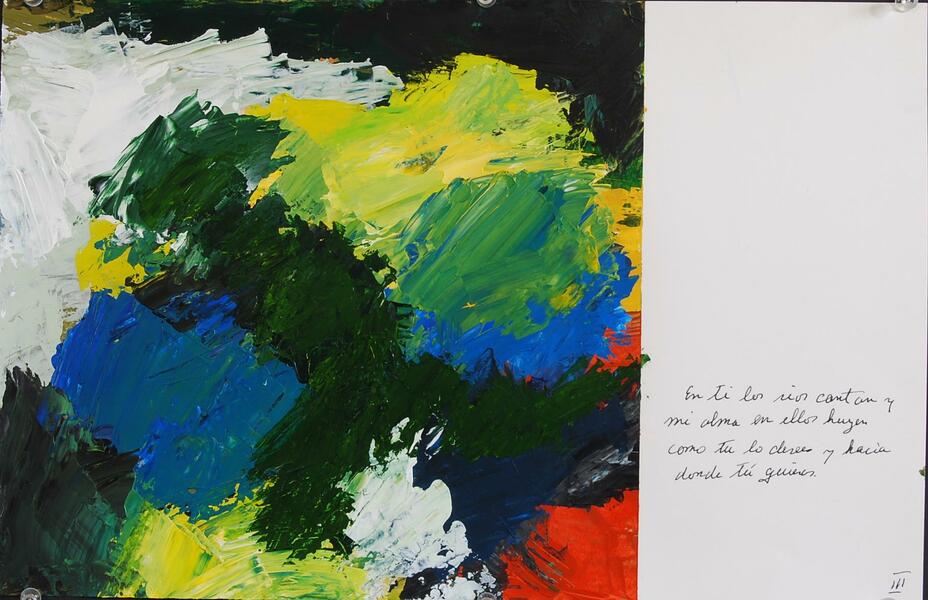 En ti los rios cantan y
mi alma en ellos huyen
como tu lo desees y hacia
donde tú quieras.
III